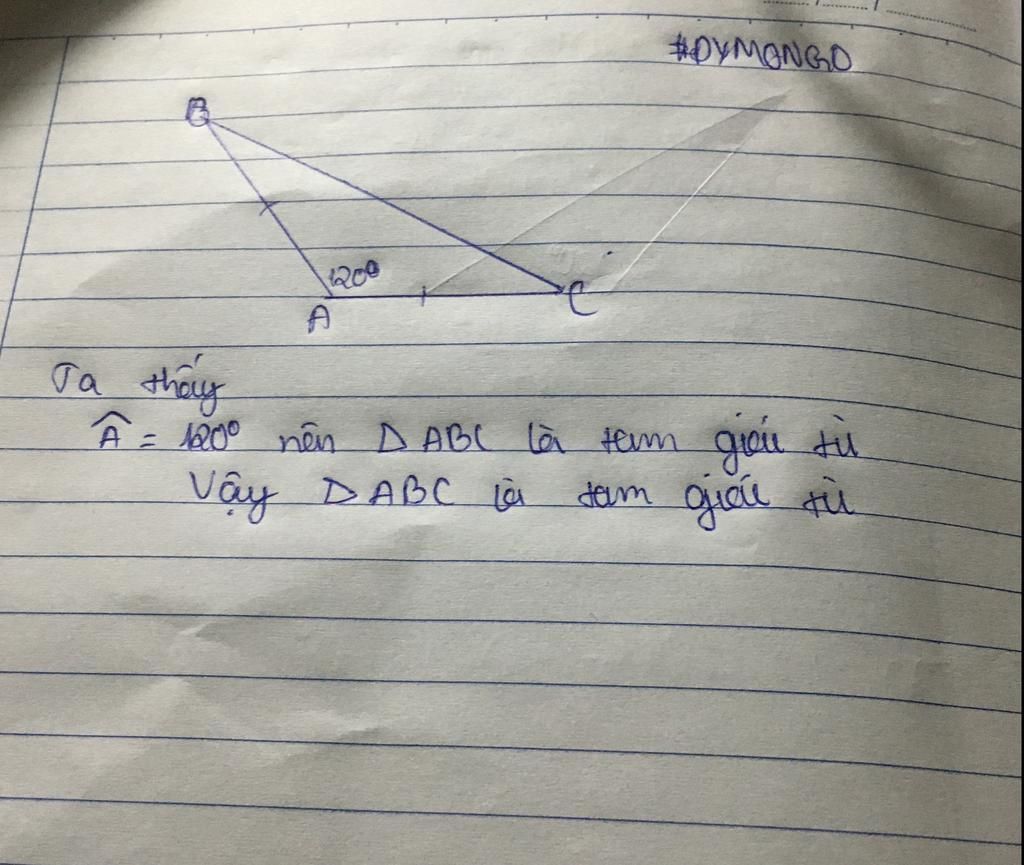 #DYMONGO
B
120⁰
A
C
Ta thấy
Â = 120⁰ nên Δ ABC là tam giác tù
Vậy Δ ABC là tam giác tù